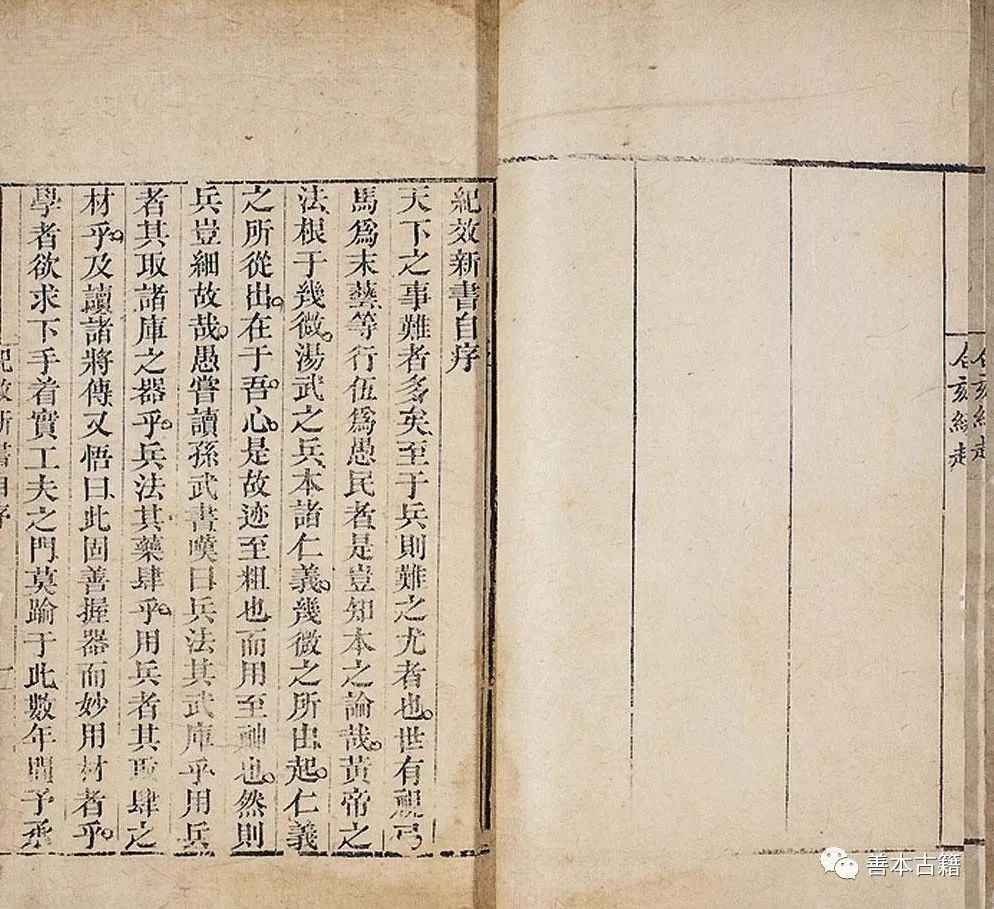 合刻緣起
合刻緣起
紀效新書自序
天下之事難者多矣至于兵則難之尤者也。世有視弓
馬爲末藝等行伍爲愚民者是豈知本之論哉。黃帝之
法根于幾微。湯武之兵本諸仁義。幾微之所由起。仁義
之所從出。在于吾心。是故迹至粗也而用至神也。然則
兵豈細故哉。愚嘗讀孫武書嘆曰兵法其武庫乎用兵
者其取諸庫之器乎。兵法其藥肆乎。用兵者其取肆之
材乎。及讀諸將傳又悟曰此固善握器而妙用材者乎。
學者欲求下手着實工夫之門莫踰于此數年間予承
紀效新書自序
一
善本古籍